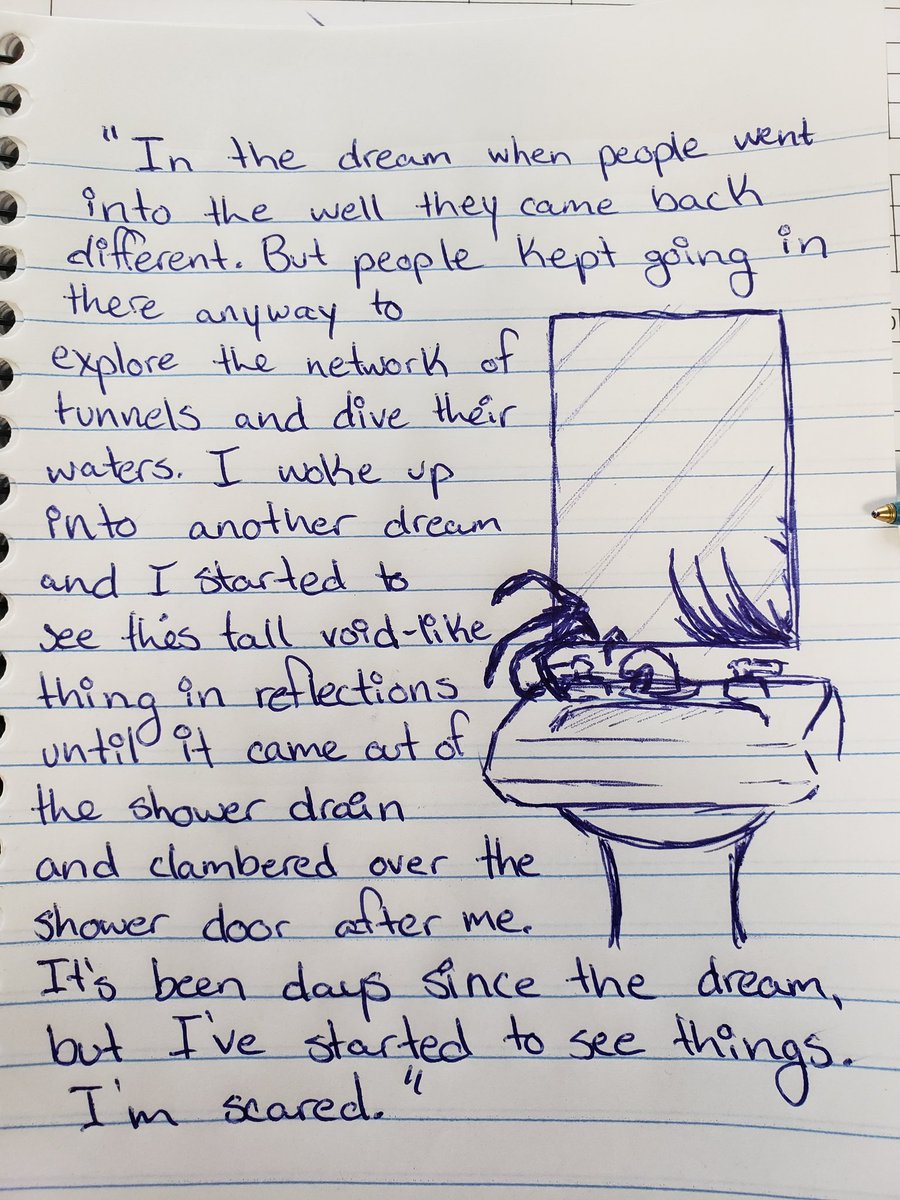 "In the dream when people went
into the well they came back
different. But people kept going in
there anyway to
explore the network of
tunnels and dive their
waters. I woke up
into another dream
and I started to
see this tall void-like
thing in reflections
until it came out of
the shower drain
and clambered over the
shower door after me.
It's been days since the dream,
but I've started to see things.
I'm scared."